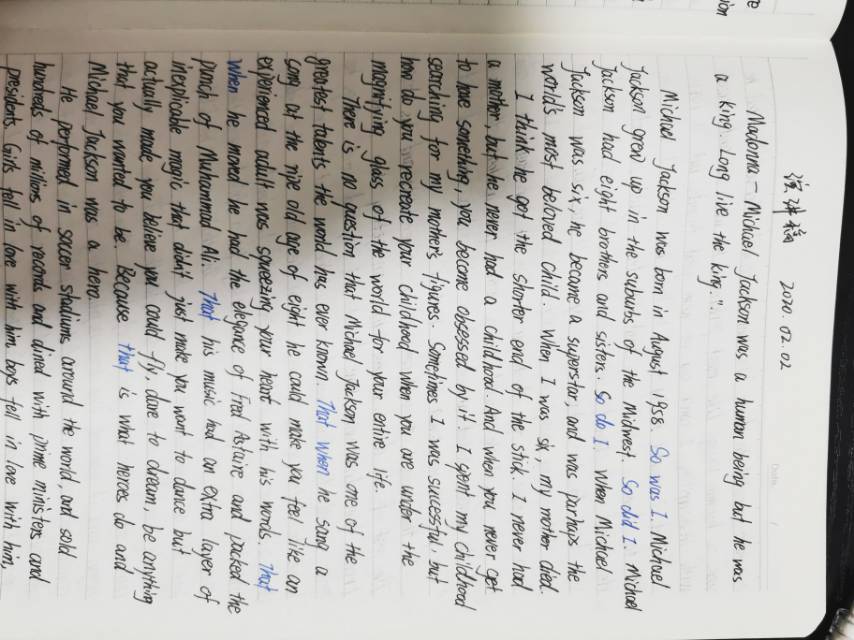 演讲稿 2020.02.02
Madonna - Michael Jackson was a human being but he was
a king. Long live the king."
Michael Jackson was born in August 1958. So was I. Michael
Jackson grew up in the suburbs of the Midwest. So did I. Michael
Jackson had eight brothers and sisters. So do I. When Michael
Jackson was six, he became a superstar, and was parhaps the
world's most beloved child. When I was six, my mother died.
I think he got the shorter end of the stick. I never had
a mother, but he never had a childhood. And when you never get
to have something, you become obsessed by it. I spent my childhood
searching for my mother's figures. Sometimes I was successful, but
how do you recreate your childhood when you are under the
magnifying glass of the world for your entire life.
There is no question that Michael Jackson was one of the
greatest talents the world has ever known. That when he sang a
song at the ripe old age of eight he could make you feel like an
experienced adult was squeezing your heart with his words. That
when he moved he had the elegance of Fred Astaire and packed the
punch of Muhammad Ali. That his music had an extra layer of
inexplicable magic that didn't just make you want to dance but
actually made you believe you could fly, dare to dream, be anything
that you wanted to be. Because that is what heroes do and
Michael Jackson was a hero.
He performed in soccer stadiums around the world, and sold
hundreds of millions of records and dined with prime ministers and
presidents. Girls fell in love with him, boys fell in love with him,